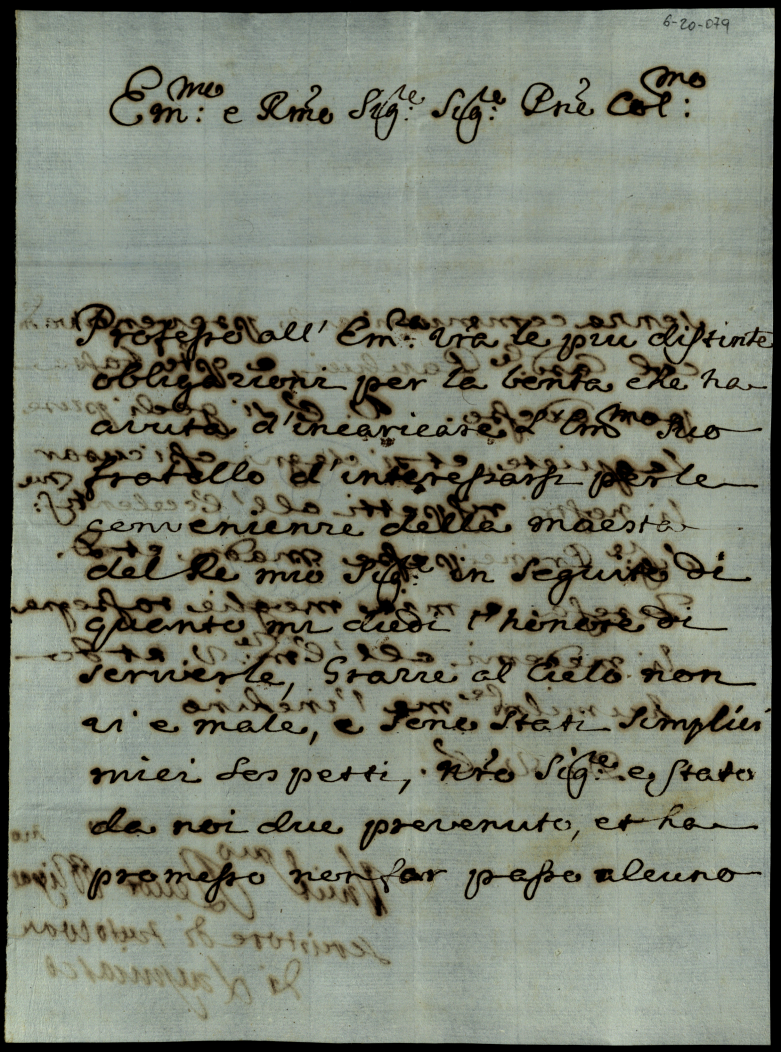 6-20-079
Em:mo e Rmo Sig:re Sig:re Pne Col:mo
Professo all' Em:za Vra le piu distinte
obligazioni per la bonta che ha
avuta d'incaricare l'Emmo suo
fratello d'interessarsi per le
convenienze della maesta
del Re mio Sig:re in seguito di
quanto mi diedi l'honore di
scriverle, Grazie al Cielo non
vi e male, e sono stati simplici
miei sospetti, Nro Sig:re e stato
da noi due prevenuto, et ha
promesso non far passo alcuno